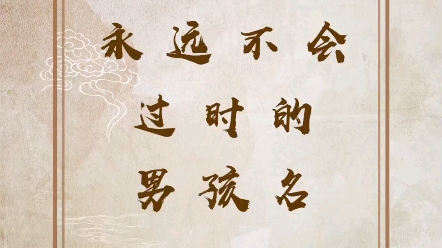 永远不会
过时的
男孩名